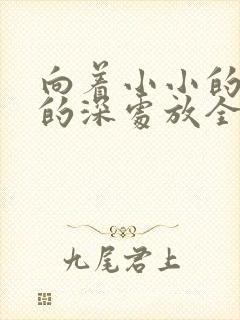 向着小小的
的深处放全
九尾君上